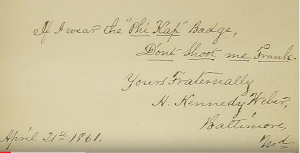 If I wear the "Phi Kap" Badge,
Dont Shoot me, Frank.
Yours Fraternally
H. Kennedy Weber,
Baltimore,
Md
April 21st 1861.